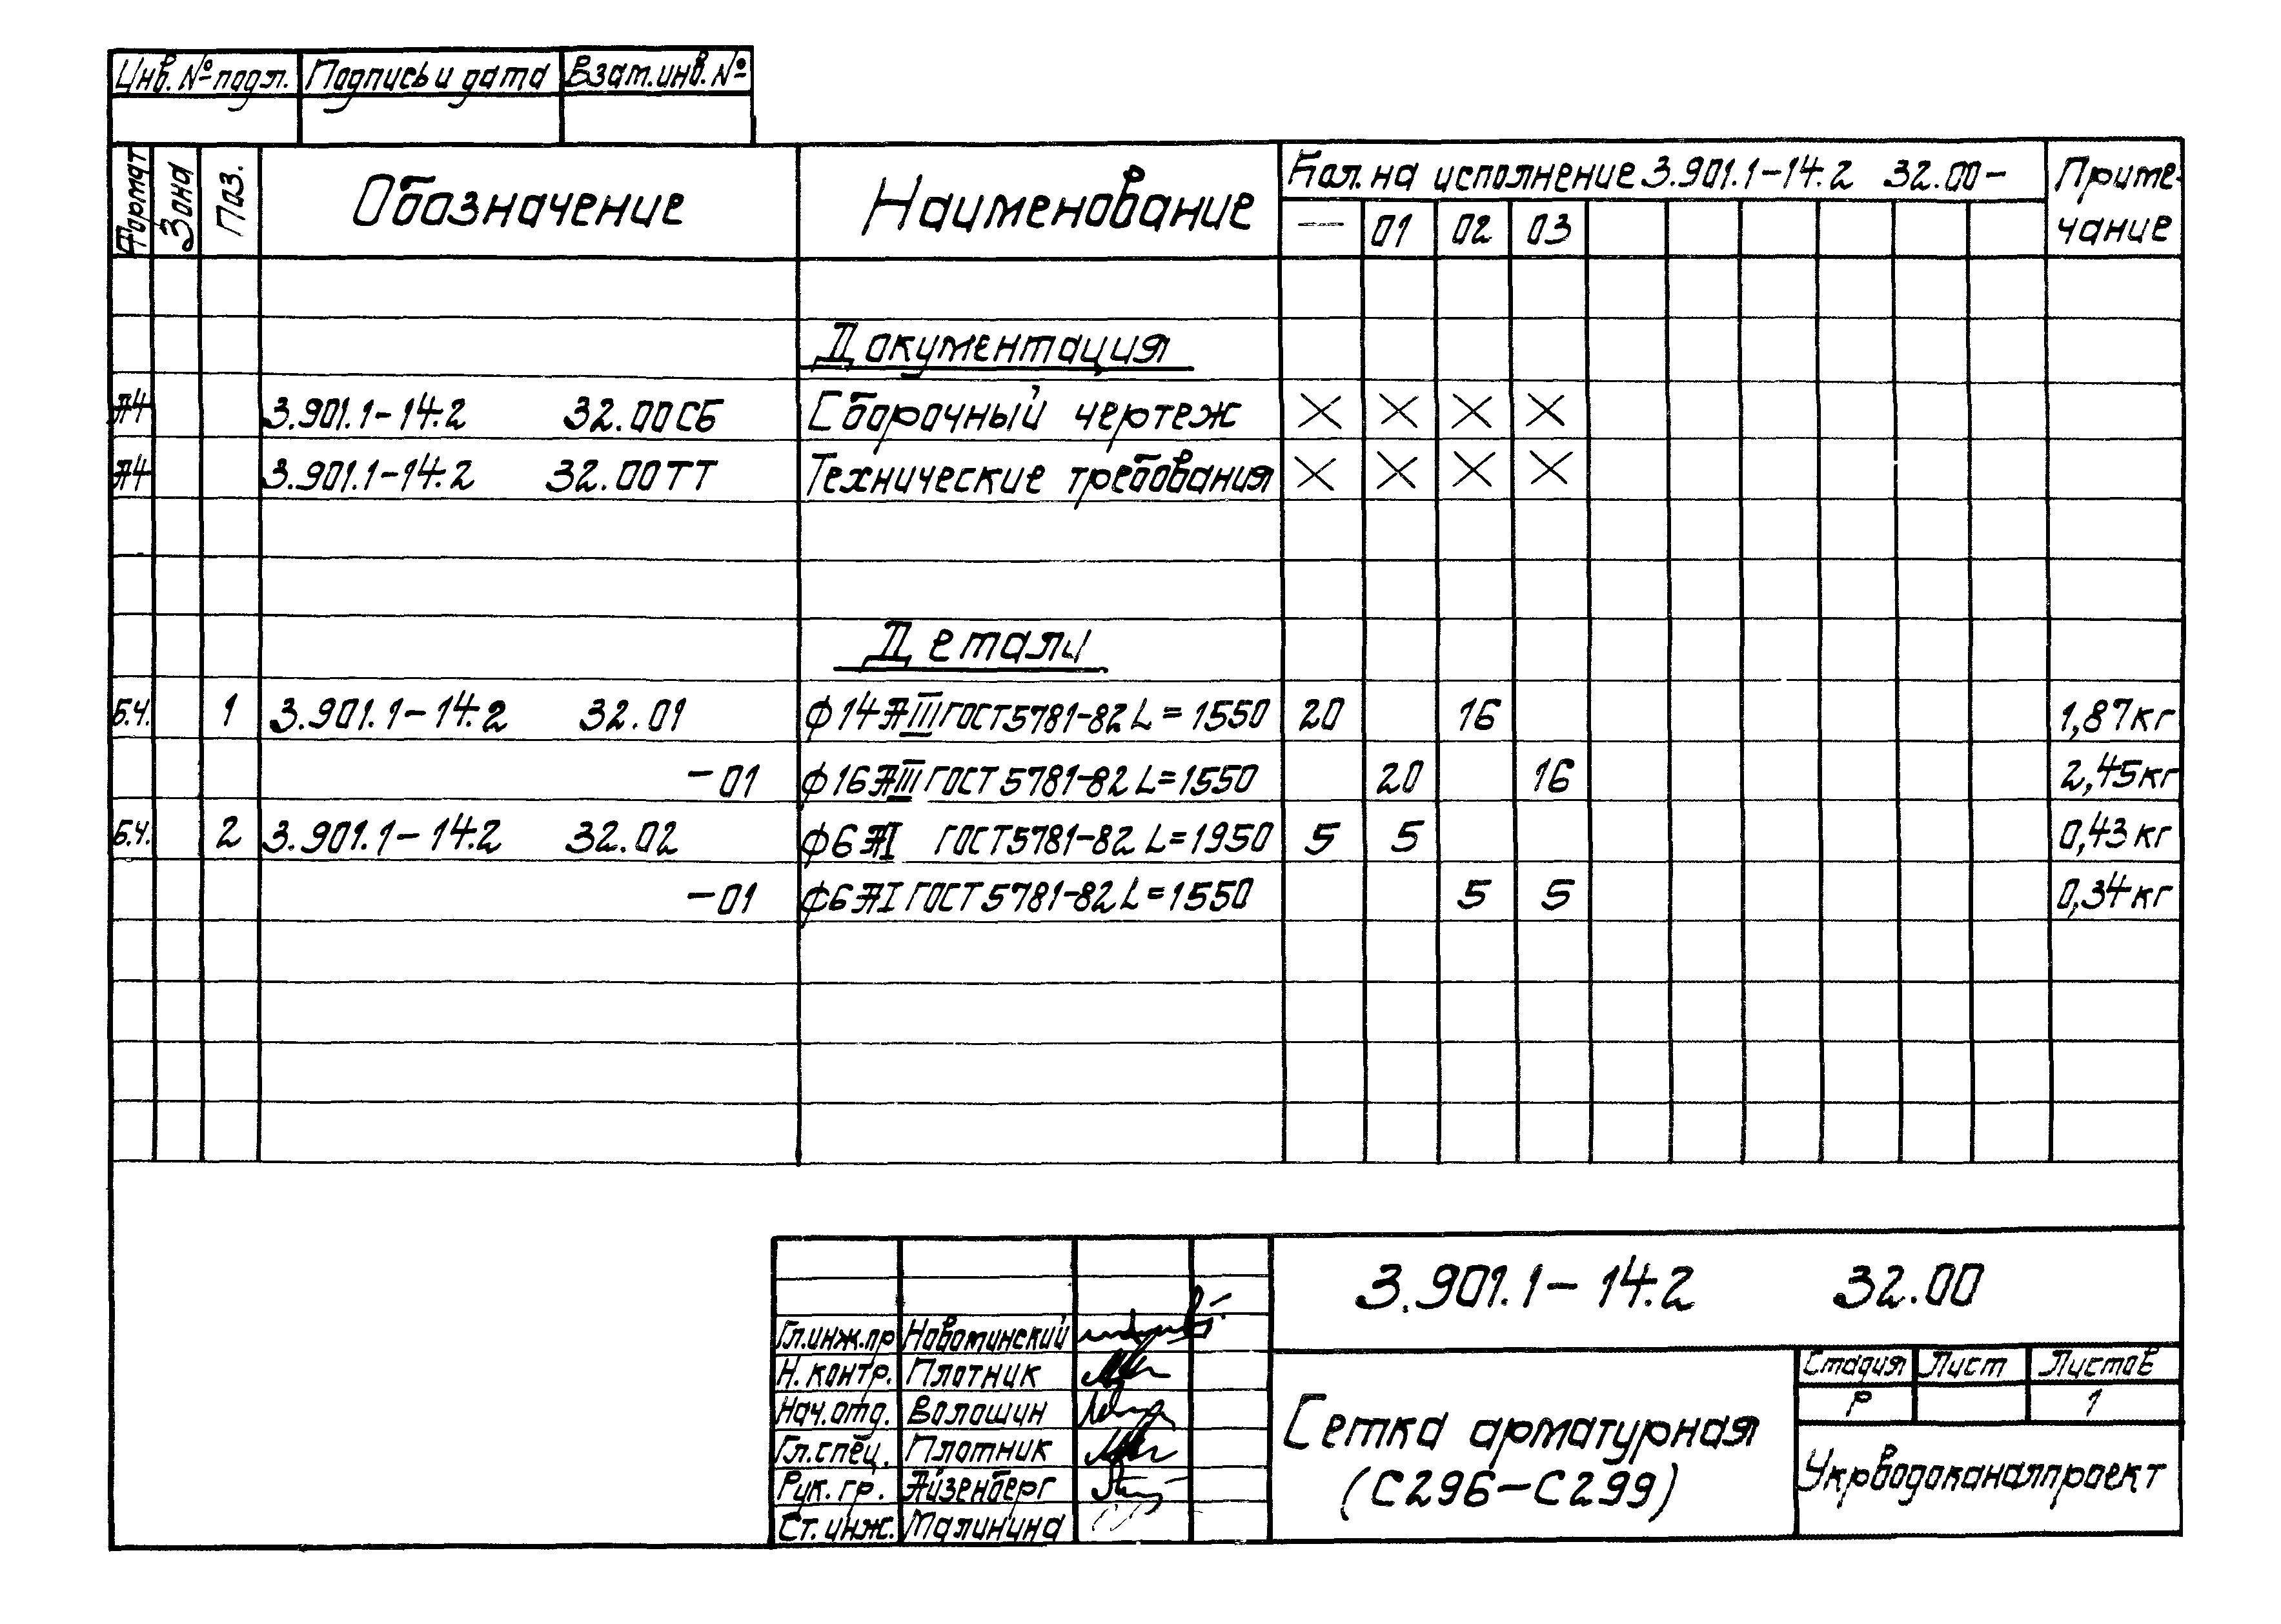 Инв. № подл. Подпись и дата Взам.инв. №
Формат Зона Поз. Обозначение Наименование Кол. на исполнение 3.901.1-14.2 32.00- Приме-
— 01 02 03 чание
Документация
А4 3.901.1-14.2 32.00СБ Сборочный чертеж X X X X
А4 3.901.1-14.2 32.00ТТ Технические требования X X X X
Детали
Б.Ч. 1 3.901.1-14.2 32.01 ф14АIII ГОСТ5781-82 L=1550 20 16 1,87кг
-01 ф16АIII ГОСТ5781-82 L=1550 20 16 2,45кг
Б.Ч. 2 3.901.1-14.2 32.02 ф6АI ГОСТ5781-82 L=1950 5 5 0,43кг
-01 ф6АI ГОСТ5781-82 L=1550 5 5 0,34кг
3.901.1-14.2 32.00
Гл.инж.пр Новоминский
Н. контр. Плотник
Нач.отд. Волошин
Гл.спец. Плотник
Рук. гр. Айзенберг
Ст. инж. Малинина
Сетка арматурная
(С296-С299)
Стадия Лист Листов
Р 1
Укрводоканалпроект